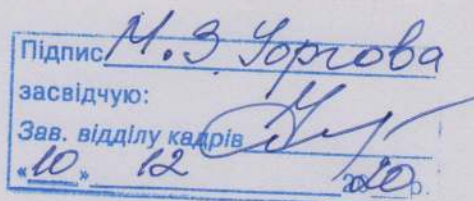 Підпис М.З Горгова
засвідчую:
Зав. відділу кадрів
«10» 12 2020р.